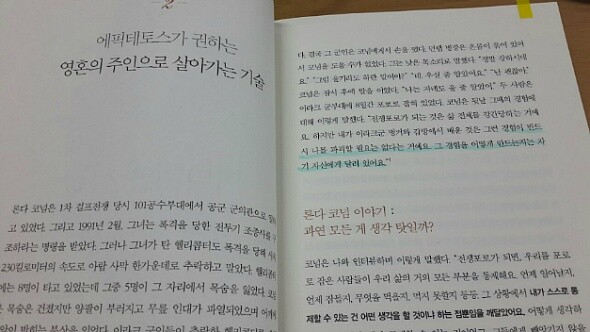 2
에픽테토스가 권하는
영혼의 주인으로 살아가는 기술
론다 코넘은 1차 걸프전쟁 당시 101공수부대에서 공군 군의관으로
고 있었다. 그리고 1991년 2월, 그녀는 폭격을 당한 전투기 조종사를
조하라는 명령을 받았다. 그러나 그녀가 탄 헬리콥터도 폭격을 당해
230킬로미터의 속도로 아랍 사막 한가운데로 추락하고 말았다.
에는 8명이 타고 있었는데 그중 5명이 그 자리에서 목숨을 잃었다.
목숨은 건졌지만 양팔이 부러지고 무릎 인대가 파열되었으며
이 박히는 부상을 입었다. 이라크 군인들이 추락한
다. 결국 그 군인은 코넘에게서 손을 뗐다. 먼델 병장은 온몸이 묶여 있어
서 코넘을 도울 수가 없었다. 그는 낮은 목소리로 말했다. “정말 강하시네
요.” “그럼 울기라도 하란 말이야?” “네, 우실 줄 알았어요.” “난 괜찮아.”
코넘은 잠시 후에 말을 이었다. “나는 자네도 울 줄 알았어.” 두 사람은
이라크 군부대에 8일간 포로로 잡혀 있었다. 코넘은 훗날 그때의 경험에
대해 이렇게 말했다. “전쟁포로가 되는 것은 삶 전체를 강간당하는 거예
요. 하지만 내가 이라크군 벙커와 감방에서 배운 것은 그런 경험이 반드
시 나를 파괴할 필요는 없다는 거예요. 그 경험을 어떻게 만드는지는 자
기 자신에게 달려 있어요.”
론다 코넘 이야기 :
과연 모든 게 생각 탓일까?
코넘은 나와 인터뷰하며 이렇게 말했다. “전쟁포로가 되면, 우리를 포로
로 잡은 사람들이 우리 삶의 거의 모든 부분을 통제해요. 언제 일어날지,
언제 잠들지, 무엇을 먹을지, 먹지 못할지 등등. 그 상황에서 내가 스스로 통
제할 수 있는 건 어떤 생각을 할 것이냐 하는 점뿐임을 깨달았어요. 어떻게 생각하